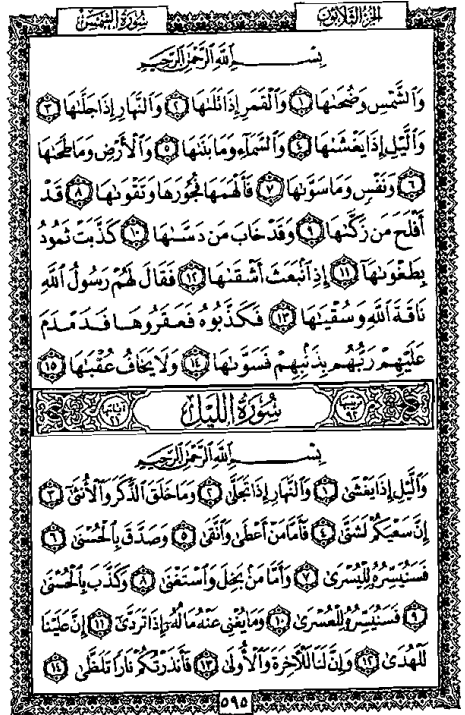 سُورَةُ الشَّمْسِ الجُزْءُ الثَّلَاثُونَ
بِسْمِ اللَّهِ الرَّحْمَٰنِ الرَّحِيمِ
وَالشَّمْسِ وَضُحَىٰهَا ١ وَالْقَمَرِ إِذَا تَلَىٰهَا ٢ وَالنَّهَارِ إِذَا جَلَّىٰهَا ٣
وَاللَّيْلِ إِذَا يَغْشَىٰهَا ٤ وَالسَّمَاءِ وَمَا بَنَىٰهَا ٥ وَالْأَرْضِ وَمَا طَحَىٰهَا
٦ وَنَفْسٍ وَمَا سَوَّىٰهَا ٧ فَأَلْهَمَهَا فُجُورَهَا وَتَقْوَىٰهَا ٨ قَدْ
أَفْلَحَ مَن زَكَّىٰهَا ٩ وَقَدْ خَابَ مَن دَسَّىٰهَا ١٠ كَذَّبَتْ ثَمُودُ
بِطَغْوَىٰهَا ١١ إِذِ انۢبَعَثَ أَشْقَىٰهَا ١٢ فَقَالَ لَهُمْ رَسُولُ اللَّهِ
نَاقَةَ اللَّهِ وَسُقْيَٰهَا ١٣ فَكَذَّبُوهُ فَعَقَرُوهَا فَدَمْدَمَ
عَلَيْهِمْ رَبُّهُم بِذَنۢبِهِمْ فَسَوَّىٰهَا ١٤ وَلَا يَخَافُ عُقْبَٰهَا ١٥
سُورَةُ اللَّيْلِ
بِسْمِ اللَّهِ الرَّحْمَٰنِ الرَّحِيمِ
وَاللَّيْلِ إِذَا يَغْشَىٰ ١ وَالنَّهَارِ إِذَا تَجَلَّىٰ ٢ وَمَا خَلَقَ الذَّكَرَ وَالْأُنثَىٰ ٣
إِنَّ سَعْيَكُمْ لَشَتَّىٰ ٤ فَأَمَّا مَنْ أَعْطَىٰ وَاتَّقَىٰ ٥ وَصَدَّقَ بِالْحُسْنَىٰ ٦
فَسَنُيَسِّرُهُ لِلْيُسْرَىٰ ٧ وَأَمَّا مَنۢ بَخِلَ وَاسْتَغْنَىٰ ٨ وَكَذَّبَ بِالْحُسْنَىٰ
٩ فَسَنُيَسِّرُهُ لِلْعُسْرَىٰ ١٠ وَمَا يُغْنِي عَنْهُ مَالُهُ إِذَا تَرَدَّىٰ ١١ إِنَّ عَلَيْنَا
لَلْهُدَىٰ ١٢ وَإِنَّ لَنَا لَلْآخِرَةَ وَالْأُولَىٰ ١٣ فَأَنذَرْتُكُمْ نَارًا تَلَظَّىٰ ١٤
٥٩٥